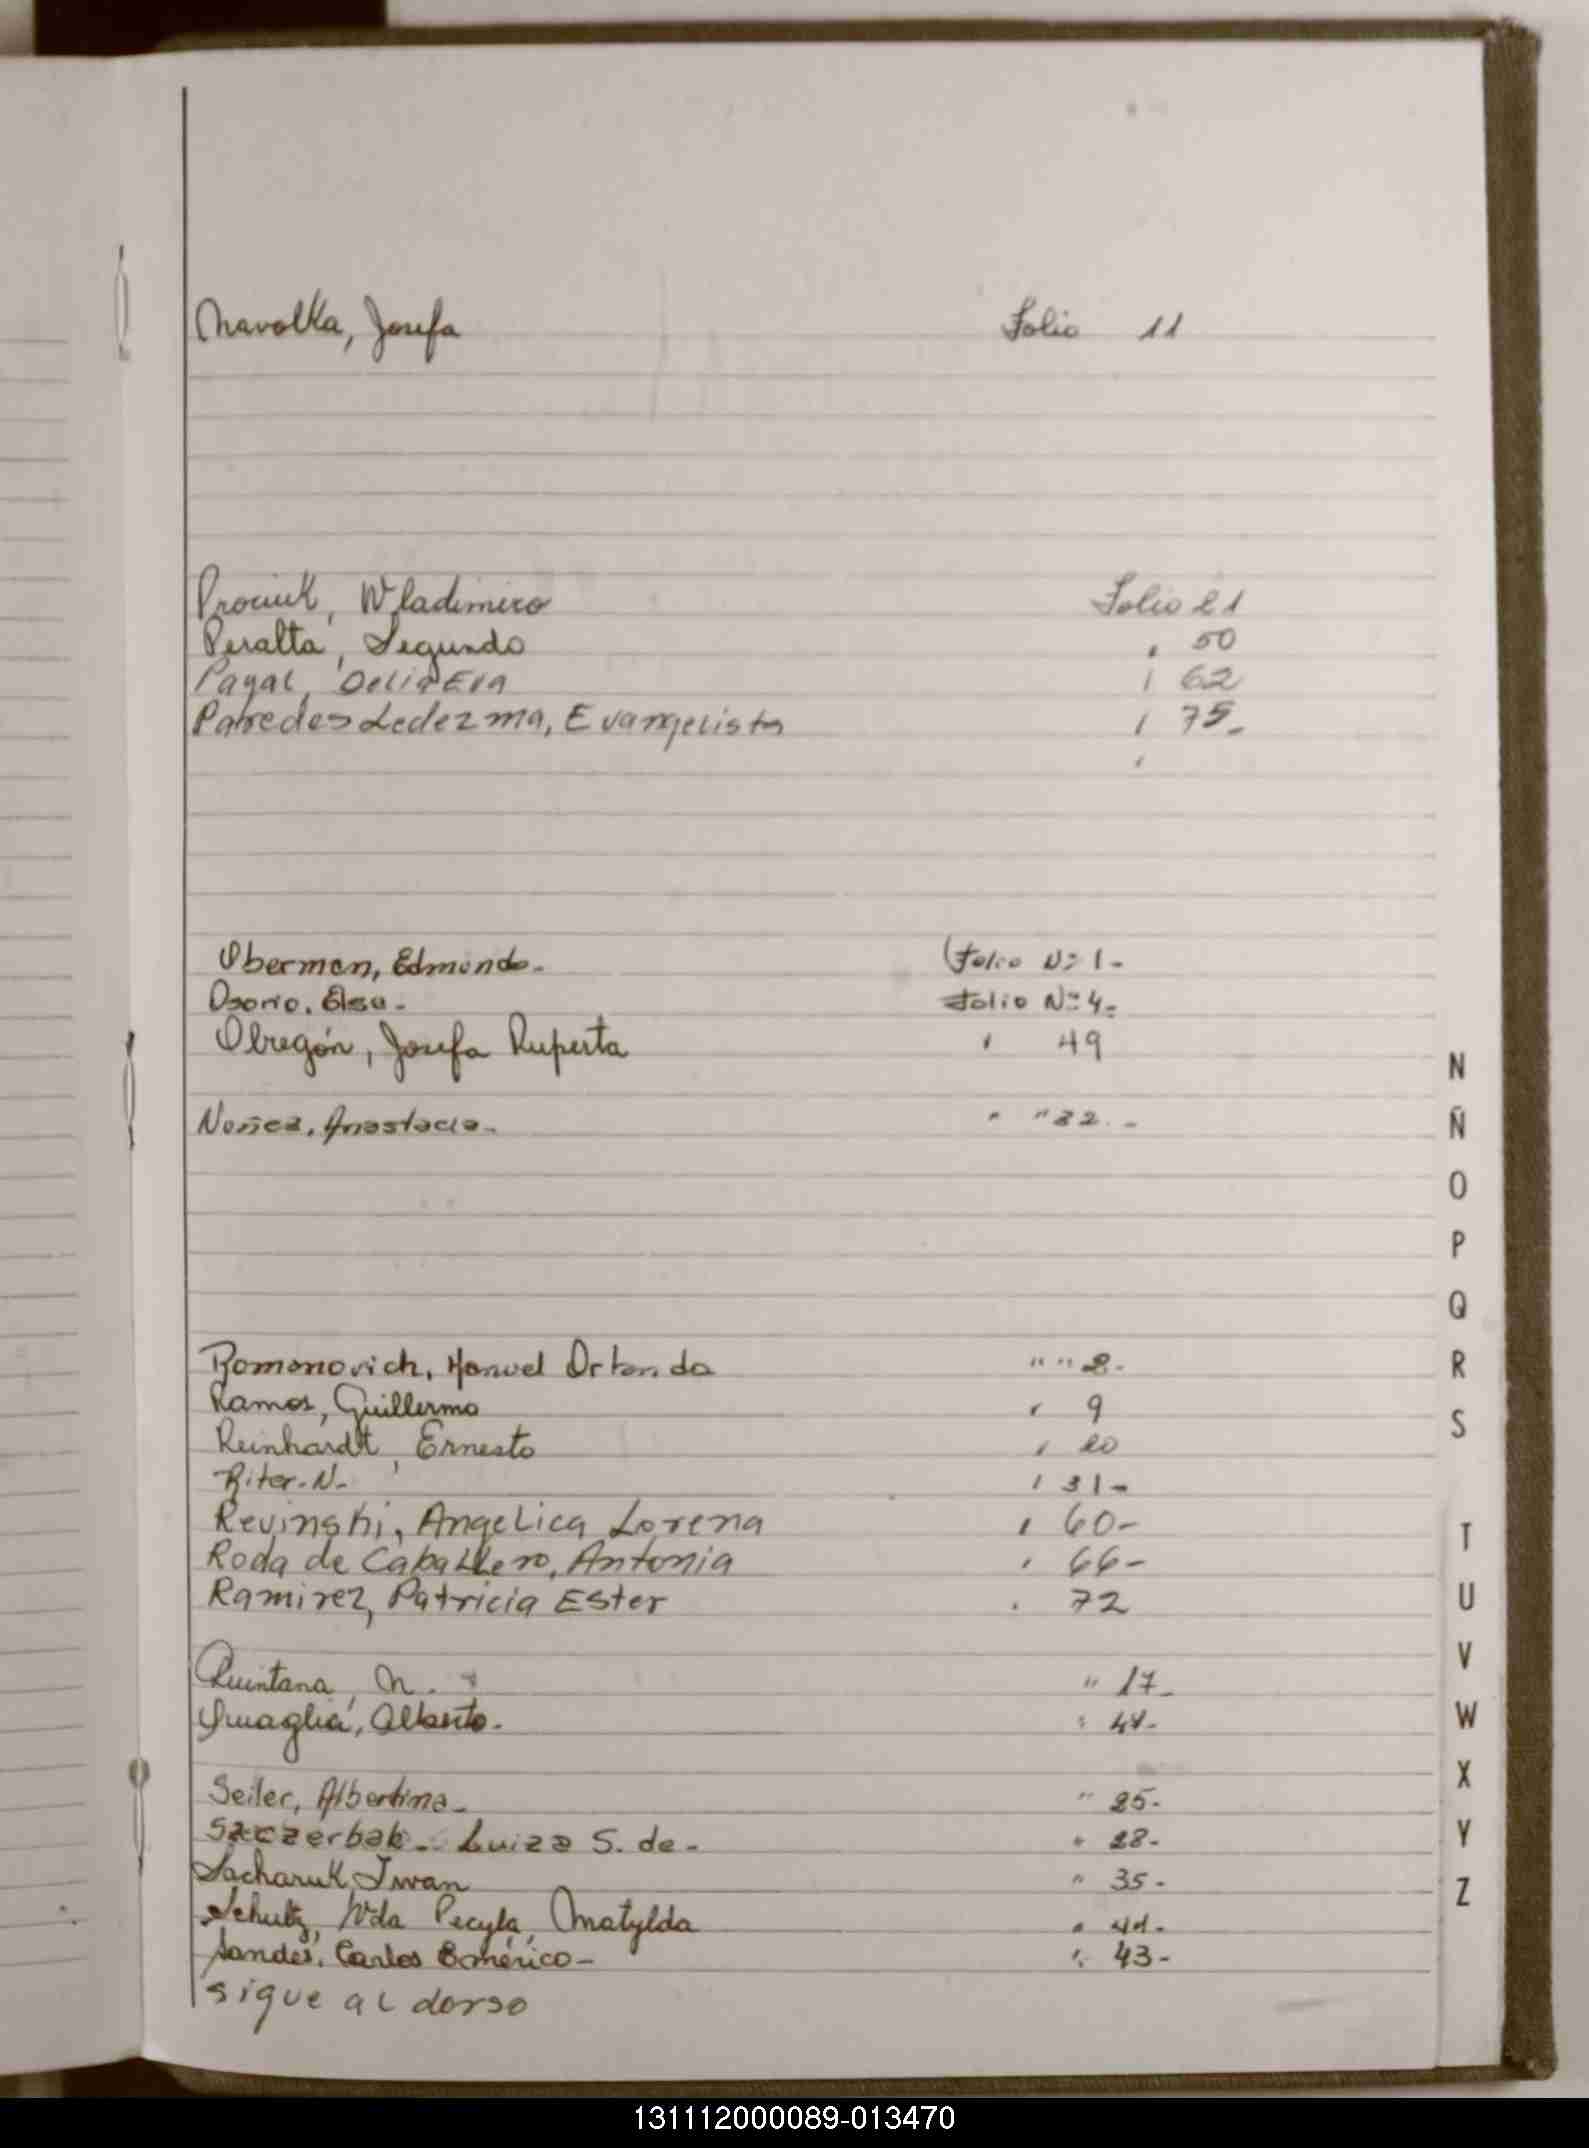 Navolka, Josefa Folio 11
Prociuk, Wladimiro Folio 21
Peralta, Segundo " 50
Payal, Delia Eva " 62
Paredes Ledezma, Evangelista " 75-
"
Oberman, Edmundo- Folio Nº 1-
Osorio, Elsa- Folio Nº 4-
Obregón, Josefa Ruperta " 49
Nuñez, Anastacia- " " 32.-
Romanovich, Manuel Orlando " " 2-
Ramos, Guillermo " 9
Reinhardt, Ernesto " 20
Riter. N- " 31-
Revinski, Angelica Lorena " 60-
Roda de Caballero, Antonia " 66-
Ramirez, Patricia Ester " 72
Quintana, N. " 17-
Quaglia, Alberto- "
Seiler, Albertina- " 25-
Szczerbak- Luiza S. de- " 28-
Sacharuk Iwan " 35-
Schultz, Vda Pecyla, Matylda " 41-
Sandes, Carlos Américo- " 43-
sigue al dorso
N
Ñ
O
P
Q
R
S
T
U
V
W
X
Y
Z
131112000089-013470